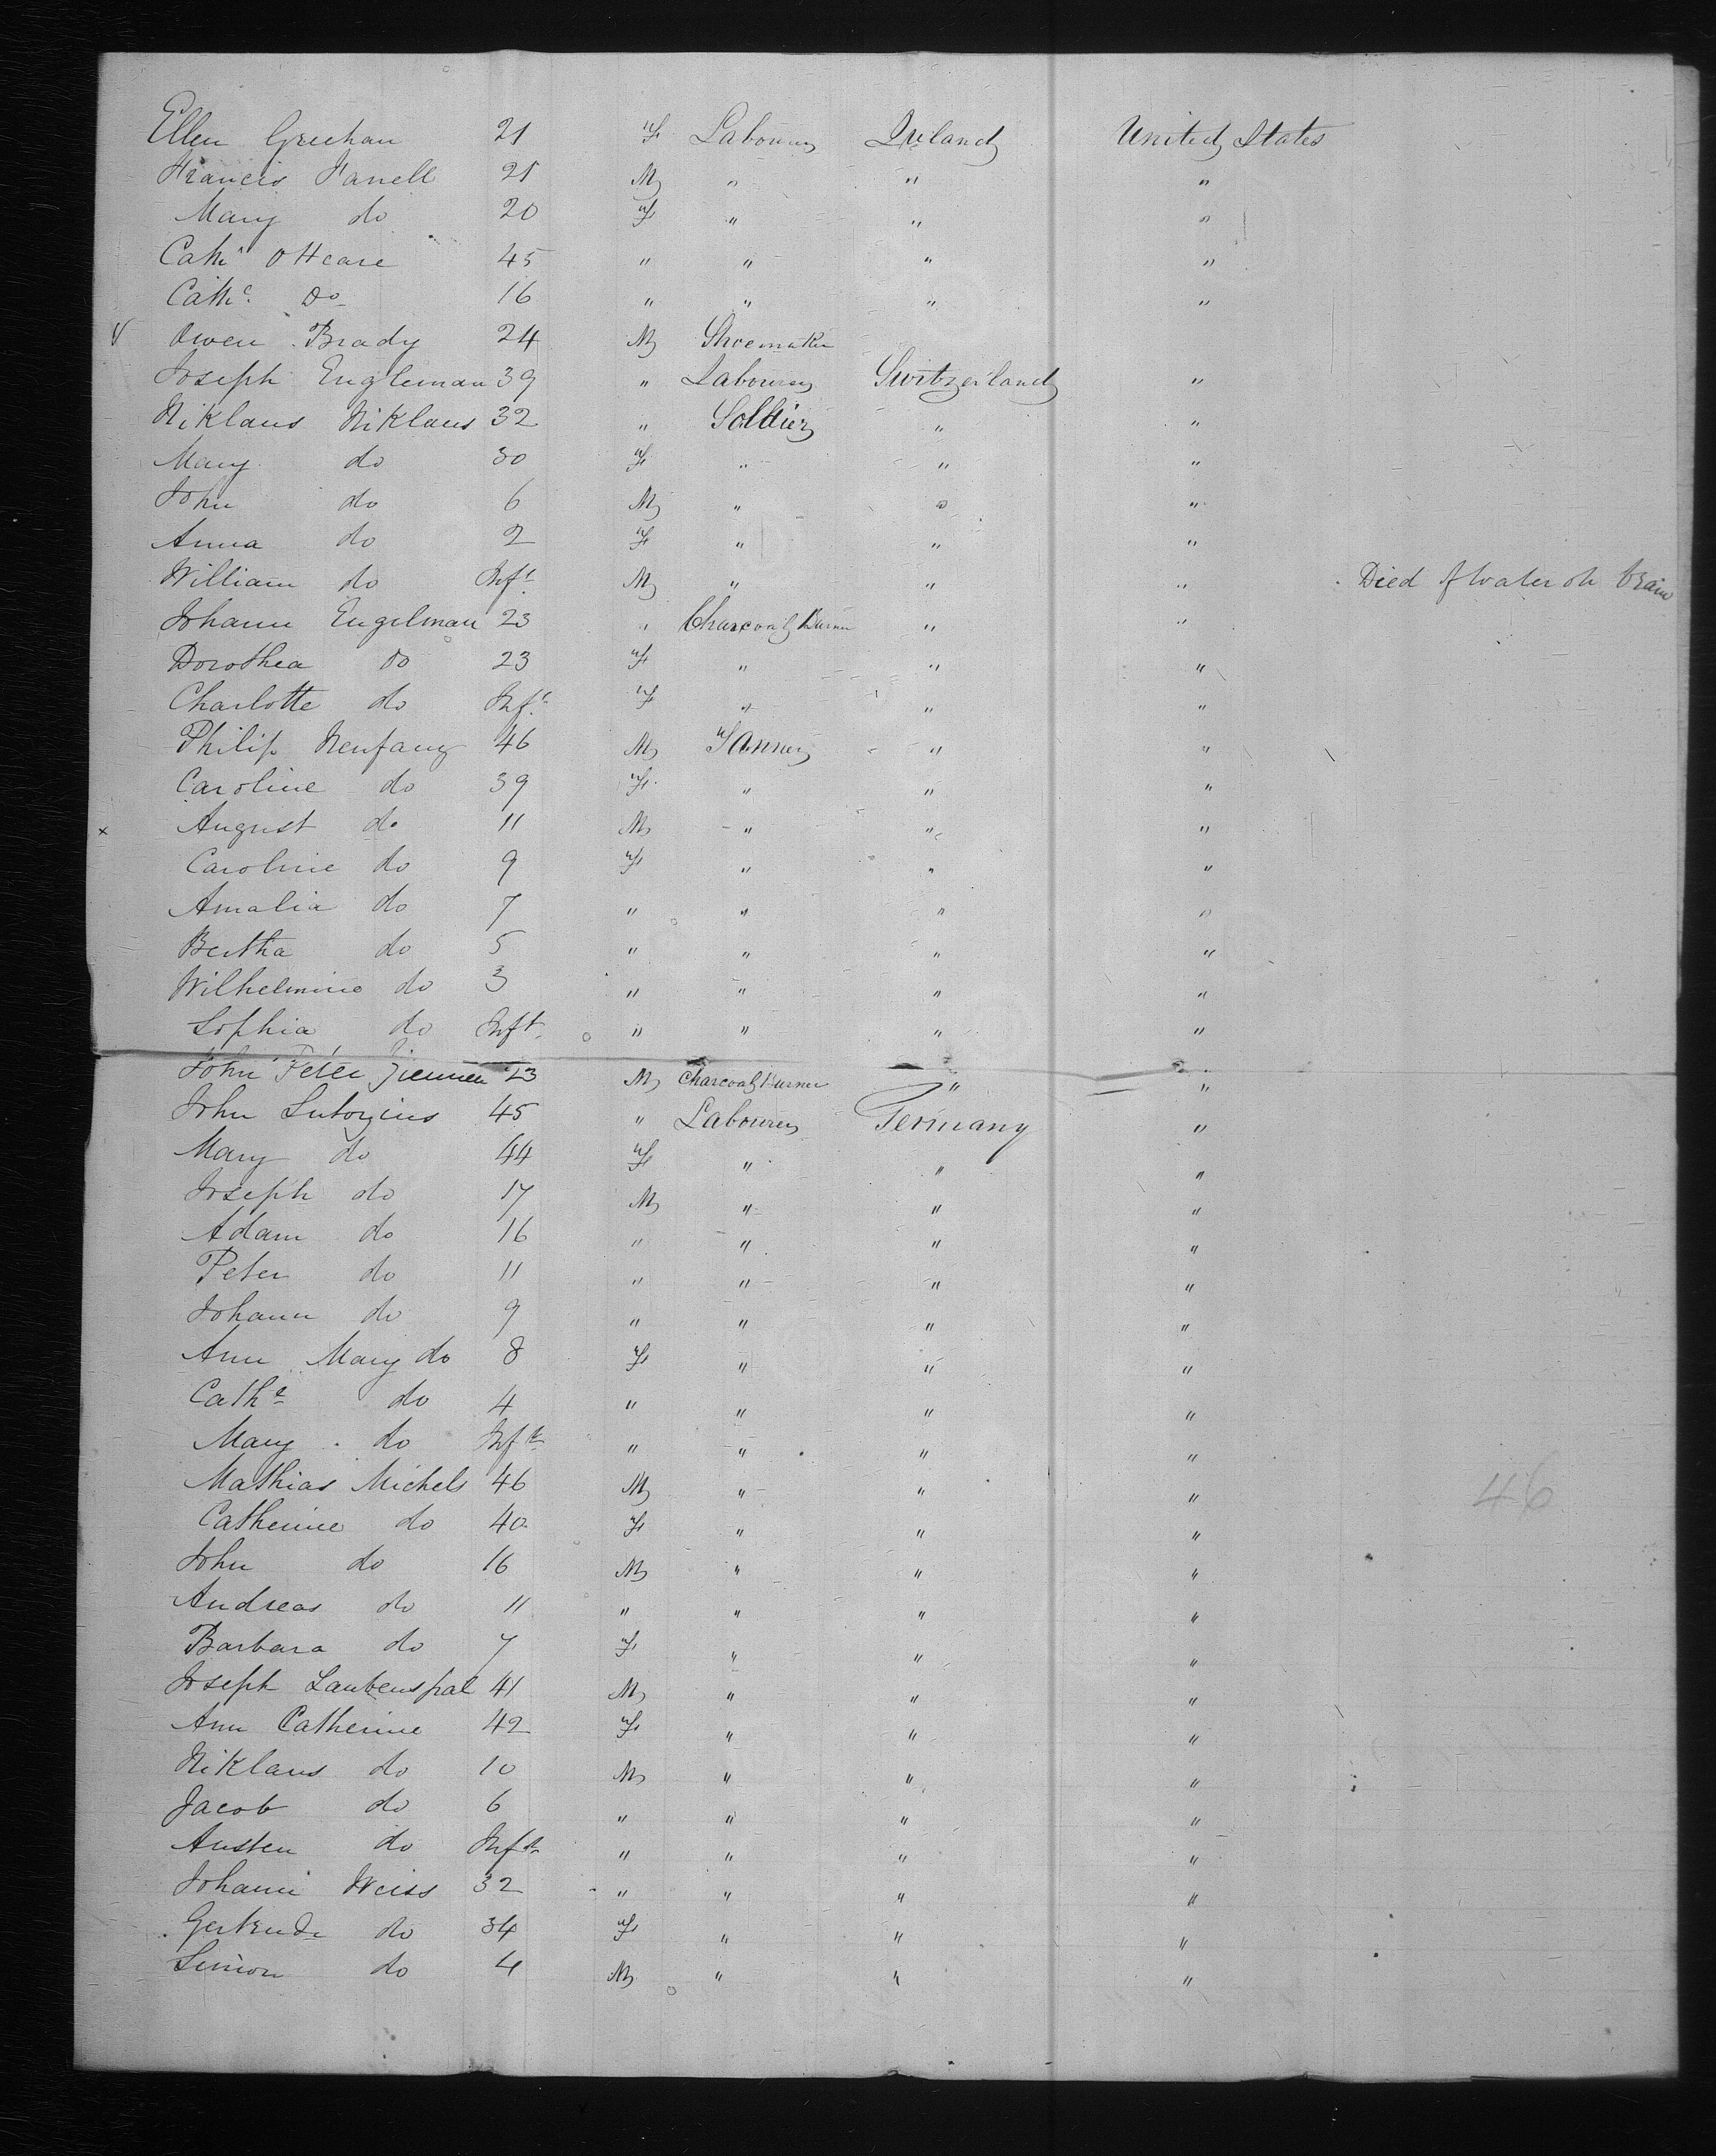 Ellen Greehan 21 F Labourer Ireland United States
Francis Farrell 21 M " " "
Mary do 20 F " " "
Cathe O Heare 45 " " " "
Cathe Do 16 " " " "
Owen Brady 24 M Shoemaker
Joseph Engleman 39 " Labourer Switzerland "
Niklaus Niklaus 32 " Soldier " "
Mary do 30 F " " "
John do 6 M " " "
Anna do 2 F " " "
William do Inft M " " " Died of water on brain
Johann Engelman 23 " Charcoal Burner " "
Dorothea Do 23 F " " "
Charlotte do Inft F " " "
Philip Neufang 46 M Tanner " "
Caroline do 39 F " " "
x August do 11 M " " "
Caroline do 9 F " " "
Amalia do 7 " " " "
Bertha do 5 " " " "
Wilhelmine do 3 " " " "
Sophia do Inft " " " "
John Peter 23 M Charcoal Burner " "
John 45 " Labourer Germany "
Mary do 44 F " " "
Joseph do 17 M " " "
Adam do 16 " " " "
Peter do 11 " " " "
Johann do 9 " " " "
Ann Mary do 8 F " " "
Cathe do 4 " " " "
Mary do Inft " " " "
Mathias Michels 46 M " " "
46
Catherine do 40 F " " "
John do 16 M " " "
Andreas do 11 " " " "
Barbara do 7 F " " "
Joseph Laubenspal 41 M " " "
Ann Catherine 42 F " " "
Niklaus do 10 M " " "
Jacob do 6 " " " "
Austen do Inft " " " "
Johann Weiss 32 " " " "
Gertrude do 34 F " " "
Simon do 4 M " " "